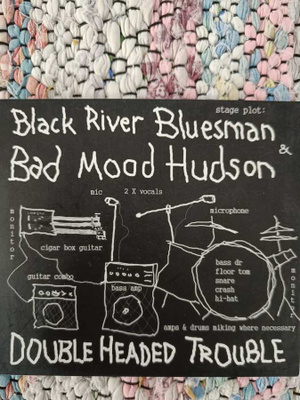 stage plot:
Black River Bluesman
&
Bad Mood Hudson
mic
2 X vocals
microphone
monitor
cigar box guitar
guitar combo
bass amp
bass dr
floor tom
snare
crash
hi-hat
monitor
amps & drums miking where necessary
DOUBLE HEADED TROUBLE